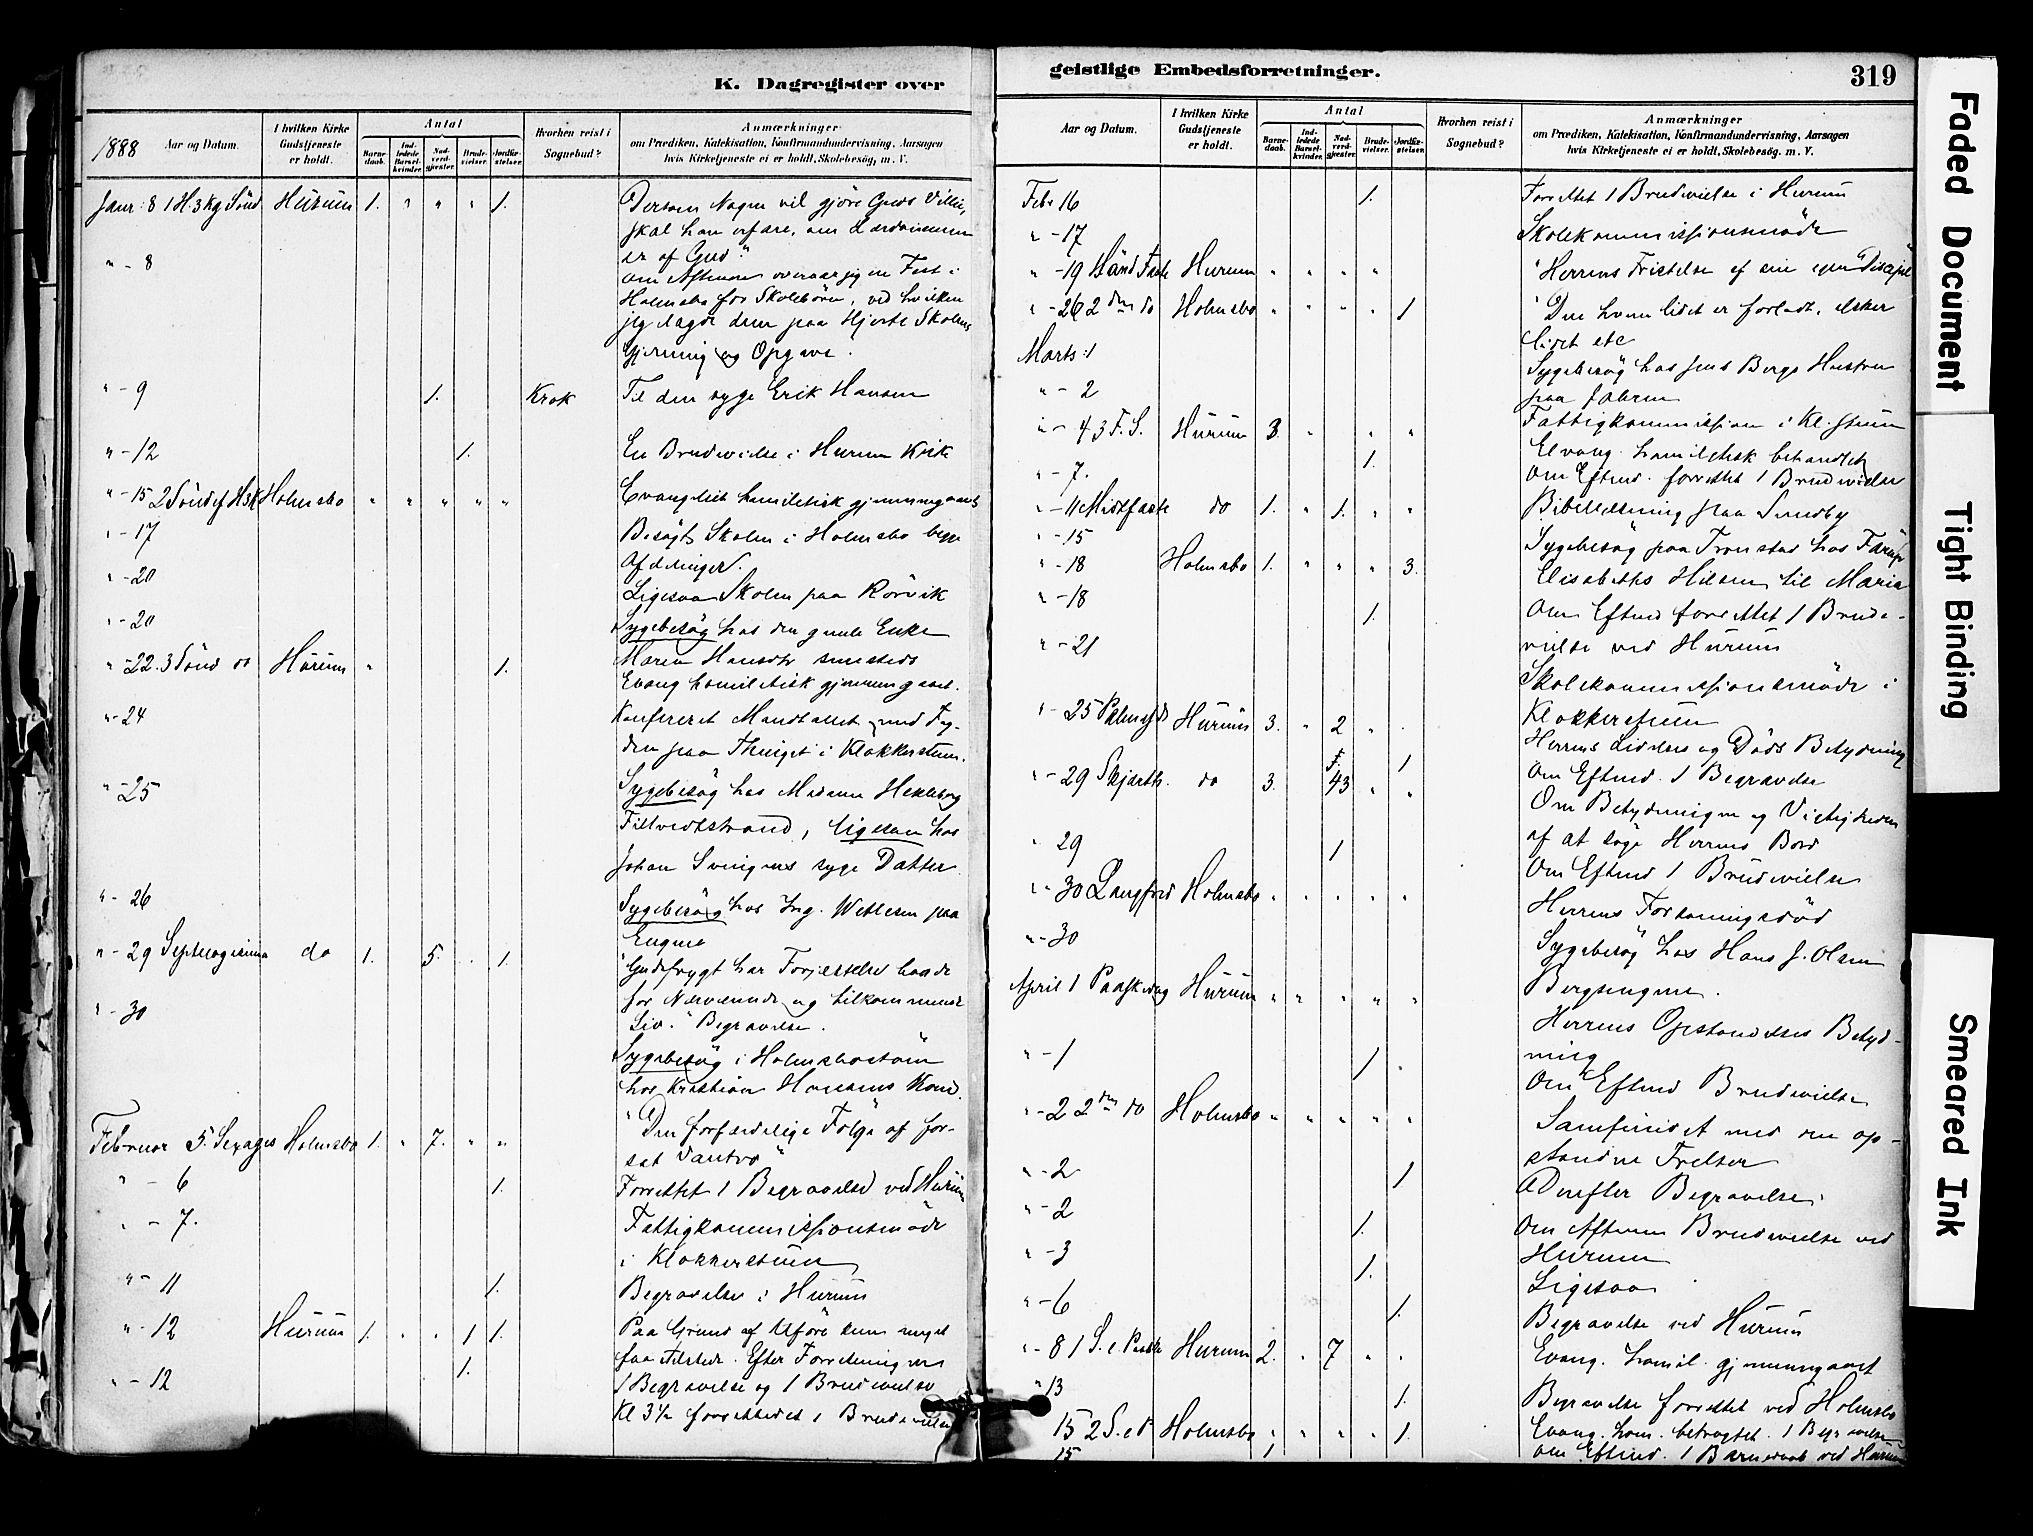 K. Dagregister over
1888 Aar og Datum.
I hvilken Kirke Gudstjeneste er holdt.
Antal
Barne-daab.
Ind-ledede Barsel-kvinder.
Nad-verd-gjester.
Brude-vielser.
Jordfæ-stelser.
Hvorhen reist i Sognebud?
Anmærkninger
om Prædiken, Katekisation, Konfirmandundervisning, Aarsagen
hvis Kirketjeneste ei er holdt, Skolebesøg, m. V.
Janr: 8 1 H3kg Sönd Hurum 1. " " " 1. Dersom Nogen vil gjøre Guds Villie,
skal han erfare, om Lærdommen
er af Gud"
" - 8 om Aftenen overvar jeg en Fest i
Holmsbo for Skolebörn, ved hvilken
jeg lagde dem paa Hjerte Skolens
Gjerning og Opgave.
" - 9 1. Krok Til den syge Erik Hansen
" - 12 1. En Brudevielse i Hurum Kirke
" - 15 2 Sönd ef H3K Holmsbo " " " " " Evangeliet homiletisk gjennemgaaet
" - 17 Besøgt Skolen i Holmsbo begge
Afdelinger.
" - 20 Ligesaa Skolen paa Rörvik
" - 20 Sygebesøg hos den gamle Enke
" - 22. 3 Sönd do Hurum " 1. Maren Hansdtr sammesteds
Evang homiletisk gjennemgaaet.
" - 24 Konfereret Mandtallet med Fog-
den paa Thinget i Klokkerstuen.
" - 25 Sygebesøg hos Madame Hekleborg
Filtvedtstrand, ligesaa hos
Johan Svingens syge Datter
" - 26 Sygebesøg hos Ing. Wetlesen paa
Engene
" - 29 Septuagesima do 1. 5. " 1. "Gudsfrygt har Forjættelse baade
for Nærværende og tilkommende
Liv." Begravelse.
" - 30 Sygebesøg i Holmsbo
hos Kristian Hansens Kone.
Februar 5. Sexages Holmsbo 1. " 7. " " "Den forfærdelige Følge af for-
sat Vantro"
" - 6 1. Forrettet 1 Begravelse ved Hurum
" - 7. Fattigkommissionsmøde
i Klokkerstuen
" - 11 1. Begravelse i Hurum
" - 12 Hurum 1. " " 1 1. Paa Grund af Uføre kun meget
faa tilstede. Efter Forretningen
1 Begravelse og 1 Brudevielse
" - 12 1. Kl 3½ forrettedes 1 Brudevielse
geistlige Embedsforretninger.
319
Aar og Datum.
I hvilken Kirke Gudstjeneste er holdt.
Antal
Barne-daab.
Ind-ledede Barsel-kvinder.
Nad-verd-gjester.
Brude-vielser.
Jordfæ-stelser.
Hvorhen reist i Sognebud?
Anmærkninger
om Prædiken, Katekisation, Konfirmandundervisning, Aarsagen
hvis Kirketjeneste ei er holdt, Skolebesøg, m. V.
Febr 16 1. Forrettet 1 Brudevielse i Hurum
" - 17 Skolekommissionsmøde
" - 19 1 Sönd Faste Hurum " " " " "Herrens Fristelse af sin egen Discipel
" - 26 2den do Holmsbo " " " " 1 "Den hvem lidet er forladt, elsker
lidet etc
Marts: 1 Sygebesøg hos Jens Bergs Hustru
paa
" - 2 Fattigkommission i Kl.stuen
" - 4 3 F.S. Hurum 3. " " " Evang. homiletisk behandlet
" - 7. 1. om Eftmd. forrettet 1 Brudevielse
" - 11 Midtfaste do 1. " 1. " " Bibellæsning paa Sundby
" - 15 Sygebesøg paa Tronstad hos
" - 18 Holmsbo 1. " " " 3. Elisabeths Hilsen til Maria
" - 18 1. Om Eftmd forrettet 1 Brude-
vielse ved Hurum
" - 21 Skolekommissionsmöde i
Klokkerstuen
" - 25 Palmesd Hurum 3. " 2 " . Herrens Lidelses og Döds Betydning
1 om Eftmd. 1 Begravelse
" - 29 Skjærth. do 3. F. 43 " " Om Betydningen og Vigtigheden
af at søge Herrens Bord
" 29 1 om Eftmd 1 Brudevielse
" - 30 Langfred Holmsbo " " " " " Herrens Forsoningsdöd
" - 30 Sygebesøg hos Hans J. Olsen
Bergsengene.
April 1 Paaskedag Hurum " " " " " Herrens Opstandelses Betyd-
ning
" - 1 1 . om Eftmd Brudevielse
" - 2 2den do Holmsbo " " " " " Samfundet med den op-
standne Frelser
" - 2 1 Derefter Begravelse.
" - 2 1. om Aftenen Brudevielse ved
Hurum
" - 3 1. Ligesaa
" - 6 1. Begravelse ved Hurum
" - 8 1 S. e Paaske Hurum 2. " 7 " . Evang. homil. gjennemgaaet
" 13 1. Begravelse forrettet ved Holmsbo
15 2 S. e P Holmsbo " " " " 1. Evang. hom. betragtet. 1 Begravelse
15 1 om Eftmd. 1 Barnedaab ved Hurum
Faded Document
Tight Binding
Smeared Ink